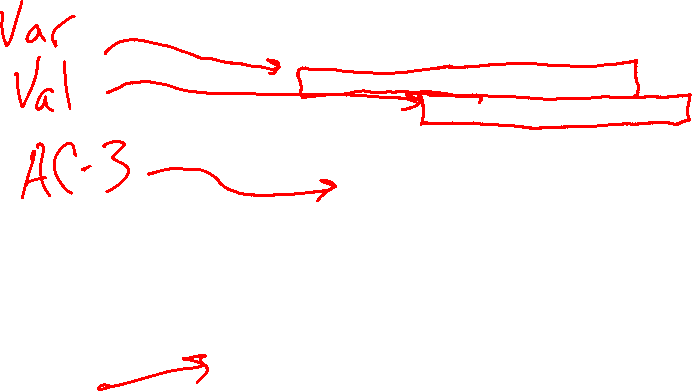 Var
Val
AC-3